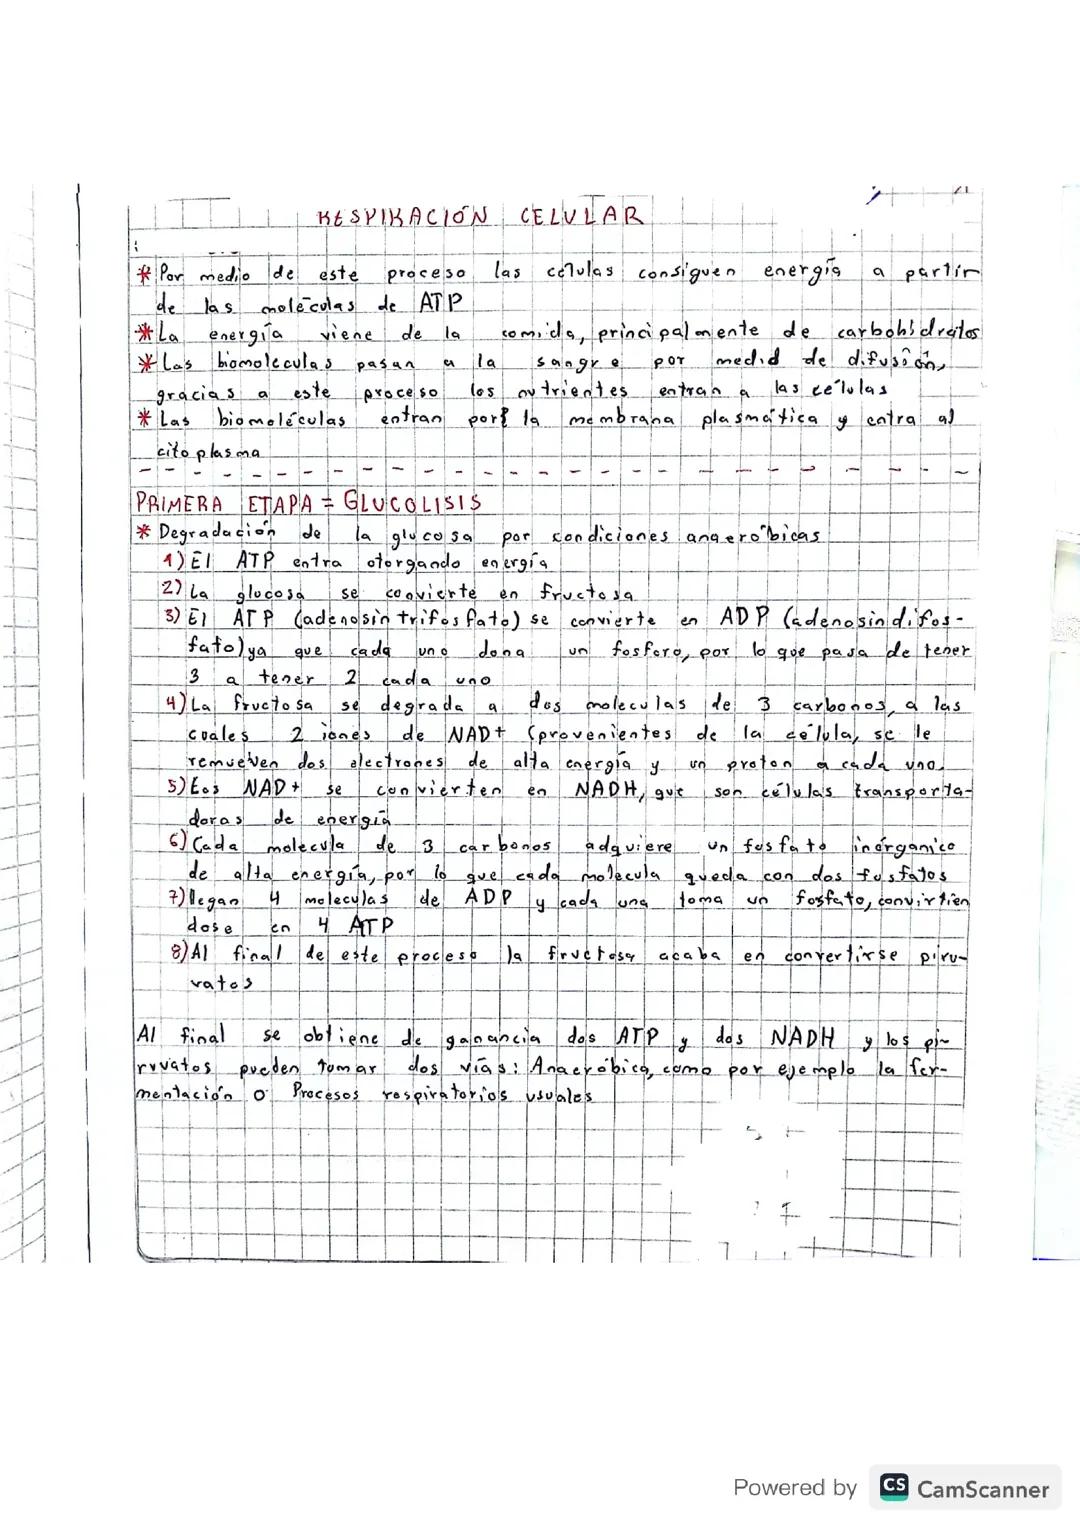 RESPIRACIÓN CELULAR
* Por medio de este proceso las células consiguen energía a partir
de las moléculas de ATP
* La energía viene de la comida, principalmente de carbohidratos
* Las biomoleculas pasan a la sangre por medio de difusión,
gracias a este proceso los nutrientes entran a las células
* Las biomoléculas entran por la membrana plasmática y entra al
citoplasma
PRIMERA ETAPA = GLUCOLISIS
* Degradación de la glucosa por condiciones anaeróbicas
1) El ATP entra otorgando energía
2) La glucosa se convierte en fructosa
3) El ATP (adenosin trifosfato) se convierte en ADP (adenosin difos-
fato) ya que cada uno dona un fosforo, por lo que pasa de tener
3 a tener 2 cada uno
4) La fructosa se degrada a dos moleculas de 3 carbonos, a las
cuales 2 iones de NAD+ (provenientes de la célula, se le
remueven dos electrones de alta energía y un proton a cada uno.
5) Los NAD+ se convierten en NADH, que son células transporta-
doras de energía
6) Cada molecula de 3 carbonos adquiere un fosfato inorganico
de alta energía, por lo que cada molécula queda con dos fosfatos
7) llegan 4 moleculas de ADP y cada una toma un fosfato, convirtien
dose en 4 ATP
8) Al final de este proceso la fructosa acaba en convertirse piru-
vatos
Al final se obtiene de ganancia dos ATP y dos NADH y los pi-
ruvatos pueden tomar dos vías: Anaeróbica, como por ejemplo la fer-
mentación o Procesos respiratorios usuales
Powered by CS CamScanner